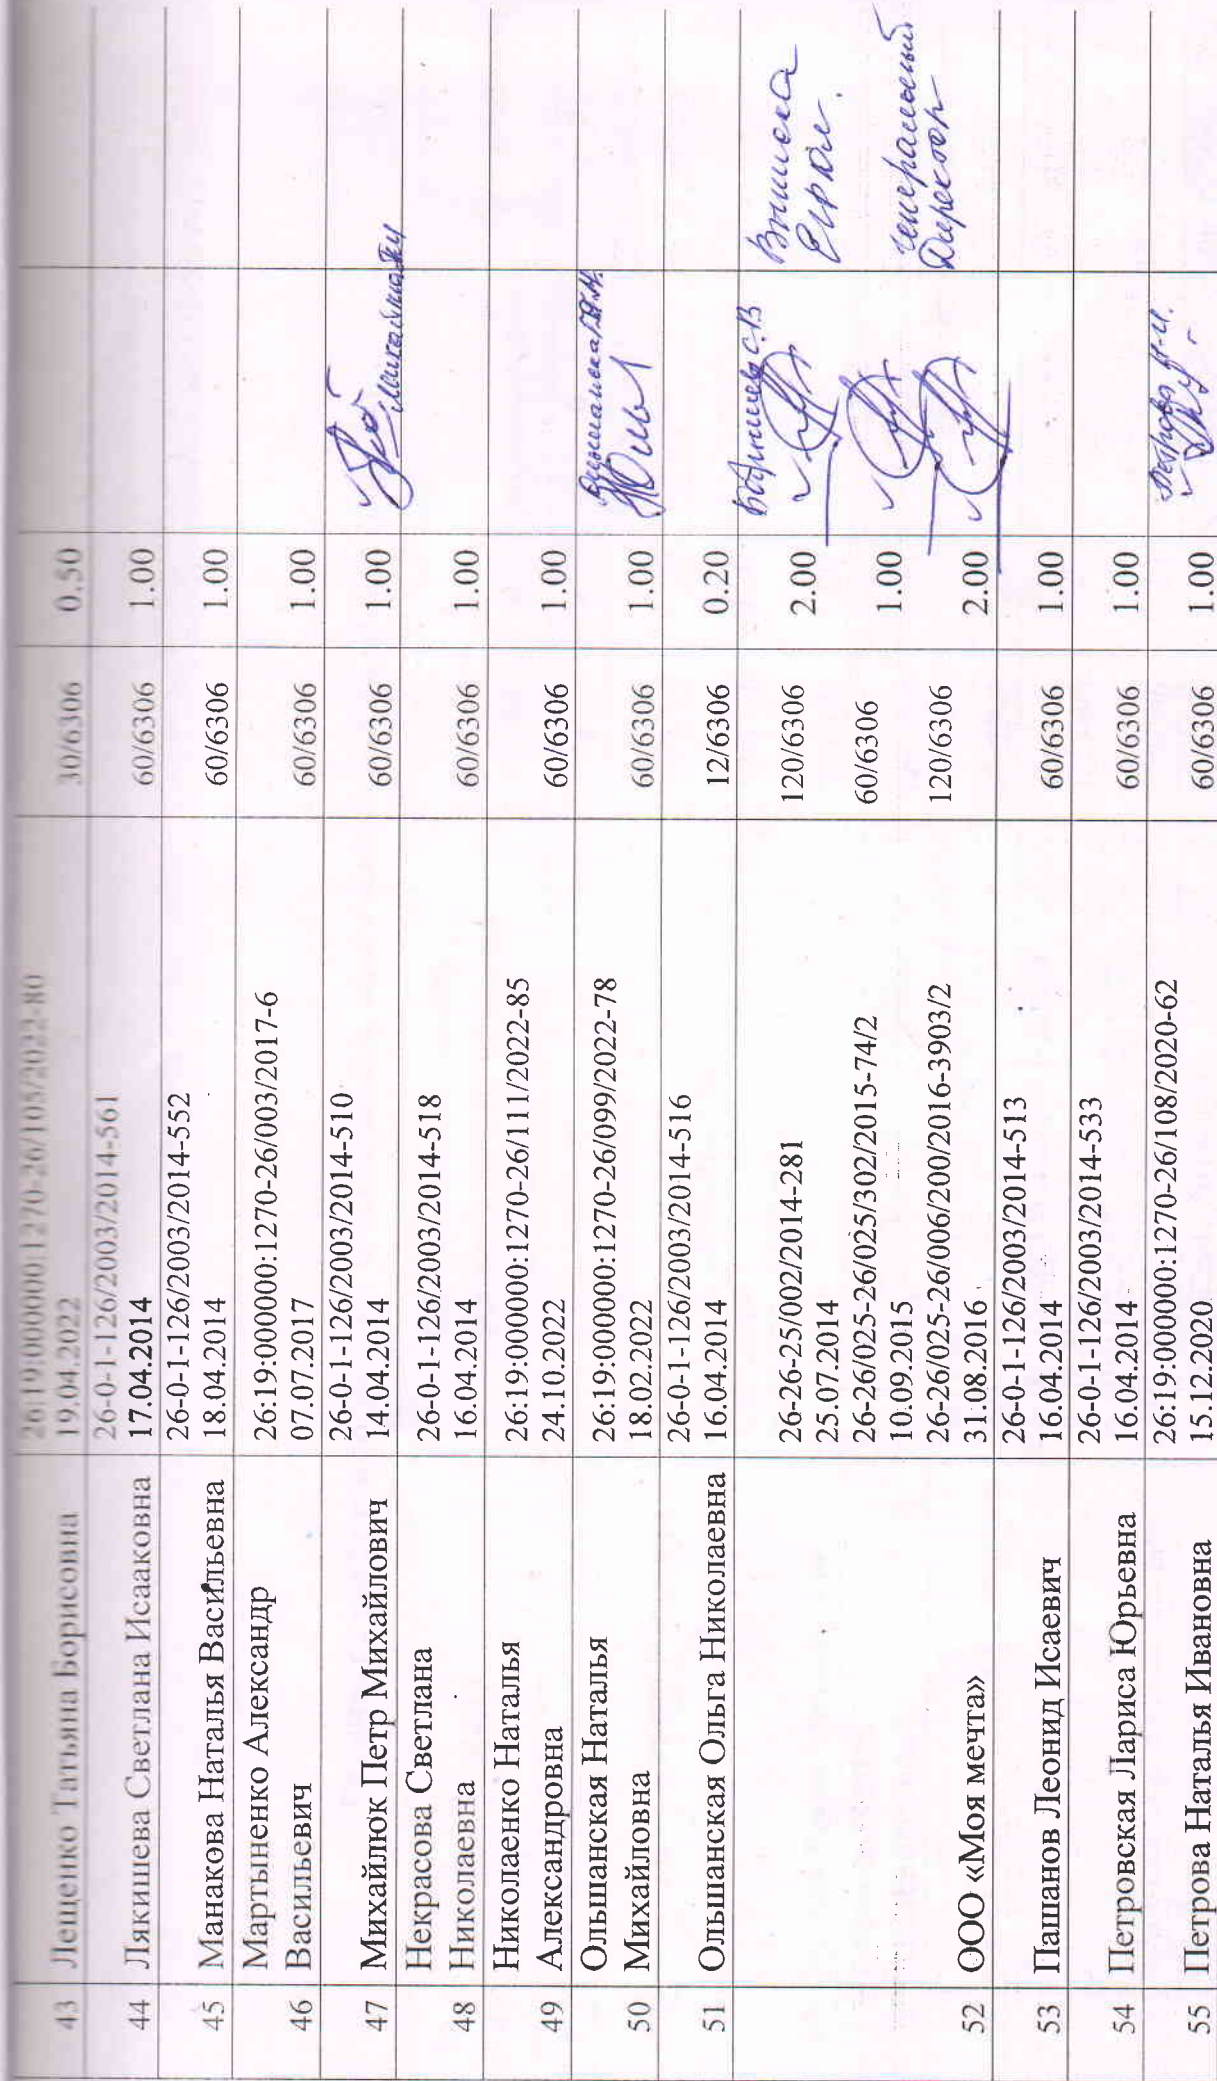 43 Лещенко Татьяна Борисовна 26:19:000000:1270-26/105/2022-80
19.04.2022 30/6306 0.50
44 Лякишева Светлана Исааковна 26-0-1-126/2003/2014-561
17.04.2014 60/6306 1.00
45 Манакова Наталья Васильевна 26-0-1-126/2003/2014-552
18.04.2014 60/6306 1.00
46 Мартыненко Александр
Васильевич 26:19:000000:1270-26/003/2017-6
07.07.2017 60/6306 1.00
47 Михайлюк Петр Михайлович 26-0-1-126/2003/2014-510
14.04.2014 60/6306 1.00
48 Некрасова Светлана
Николаевна 26-0-1-126/2003/2014-518
16.04.2014 60/6306 1.00
49 Николаенко Наталья
Александровна 26:19:000000:1270-26/111/2022-85
24.10.2022 60/6306 1.00
50 Ольшанская Наталья
Михайловна 26:19:000000:1270-26/099/2022-78
18.02.2022 60/6306 1.00
51 Ольшанская Ольга Николаевна 26-0-1-126/2003/2014-516
16.04.2014 12/6306 0.20
52 ООО «Моя мечта» 26-26-25/002/2014-281
25.07.2014 120/6306 2.00
26-26/025-26/025/302/2015-74/2
10.09.2015 60/6306 1.00
26-26/025-26/006/200/2016-3903/2
31.08.2016 120/6306 2.00
Выписка
Генеральный
Директор
53 Пашанов Леонид Исаевич 26-0-1-126/2003/2014-513
16.04.2014 60/6306 1.00
54 Петровская Лариса Юрьевна 26-0-1-126/2003/2014-533
16.04.2014 60/6306 1.00
55 Петрова Наталья Ивановна 26:19:000000:1270-26/108/2020-62
15.12.2020 60/6306 1.00
Петрова Н.И.